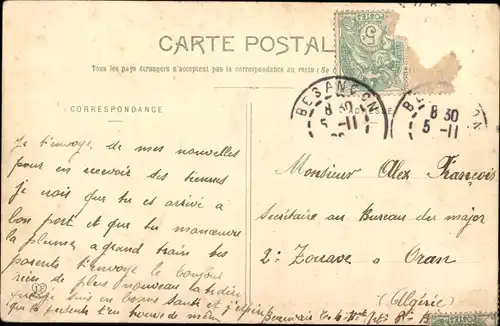 CARTE POSTAL
Tous les pays étrangers n'acceptent pas la correspondance au recto (Se
CORRESPONDANCE
ADRESSE
POSTES
5
BESANÇON
8 30
5 -11
8 30
5 -11
Je t'envoye de mes nouvelles
pour en recevoir des tiennes
Je crois que tu es arrivé à
bon port et que tu manœuvre
la plume a grand train tes
parents t'envoye le bonjour
rien de plus nouveau
suis en bonne santé et j'espère
que de même
Monsieur Alex François
Secrétaire au Bureau du major
2e Zouave à Oran
(Algérie)